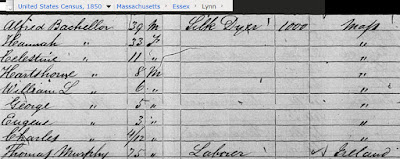 United States Census, 1850 ▾ Massachusetts ▸ Essex ▸ Lynn ▸
Alfred Bachellor 39 M Silk Dyer 1000 Mass
Hannah " 33 F "
Celestine " 11 " "
Hartshouse " 8 M "
William L " 6 " "
George " 5 " "
Eugene " 3 " "
Charles " 4/12 " "
Thomas Murphy 75 " Laborer Ireland